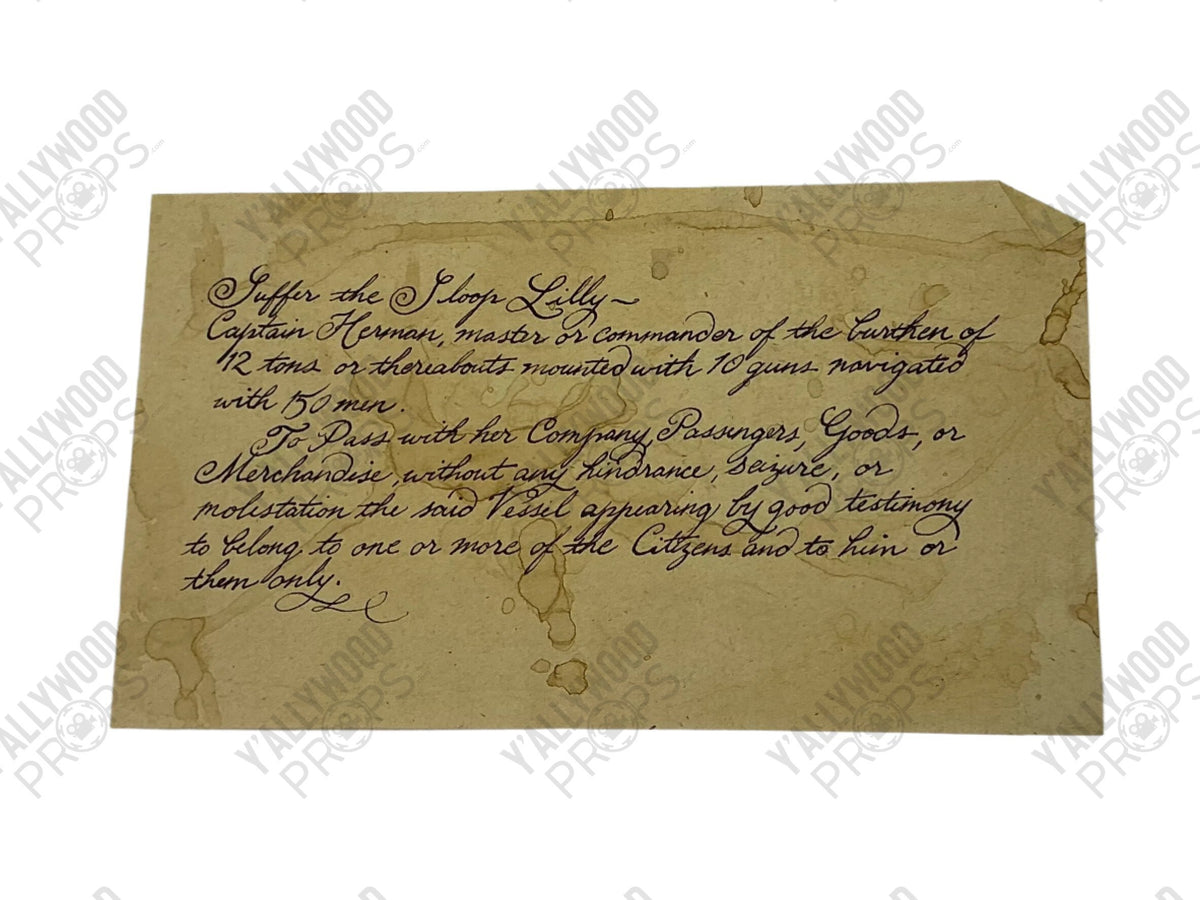 Suffer the Sloop Lilly~
Captain Herman, master or commander of the burthen of
12 tons or thereabouts mounted with 10 guns navigated
with 150 men.
To Pass with her Company, Passingers, Goods, or
Merchandise, without any hindrance, seizure, or
molestation the said Vessel appearing by good testimony
to belong to one or more of the Citizens and to him or
them only.
Y'ALLYWOOD PROPS.com